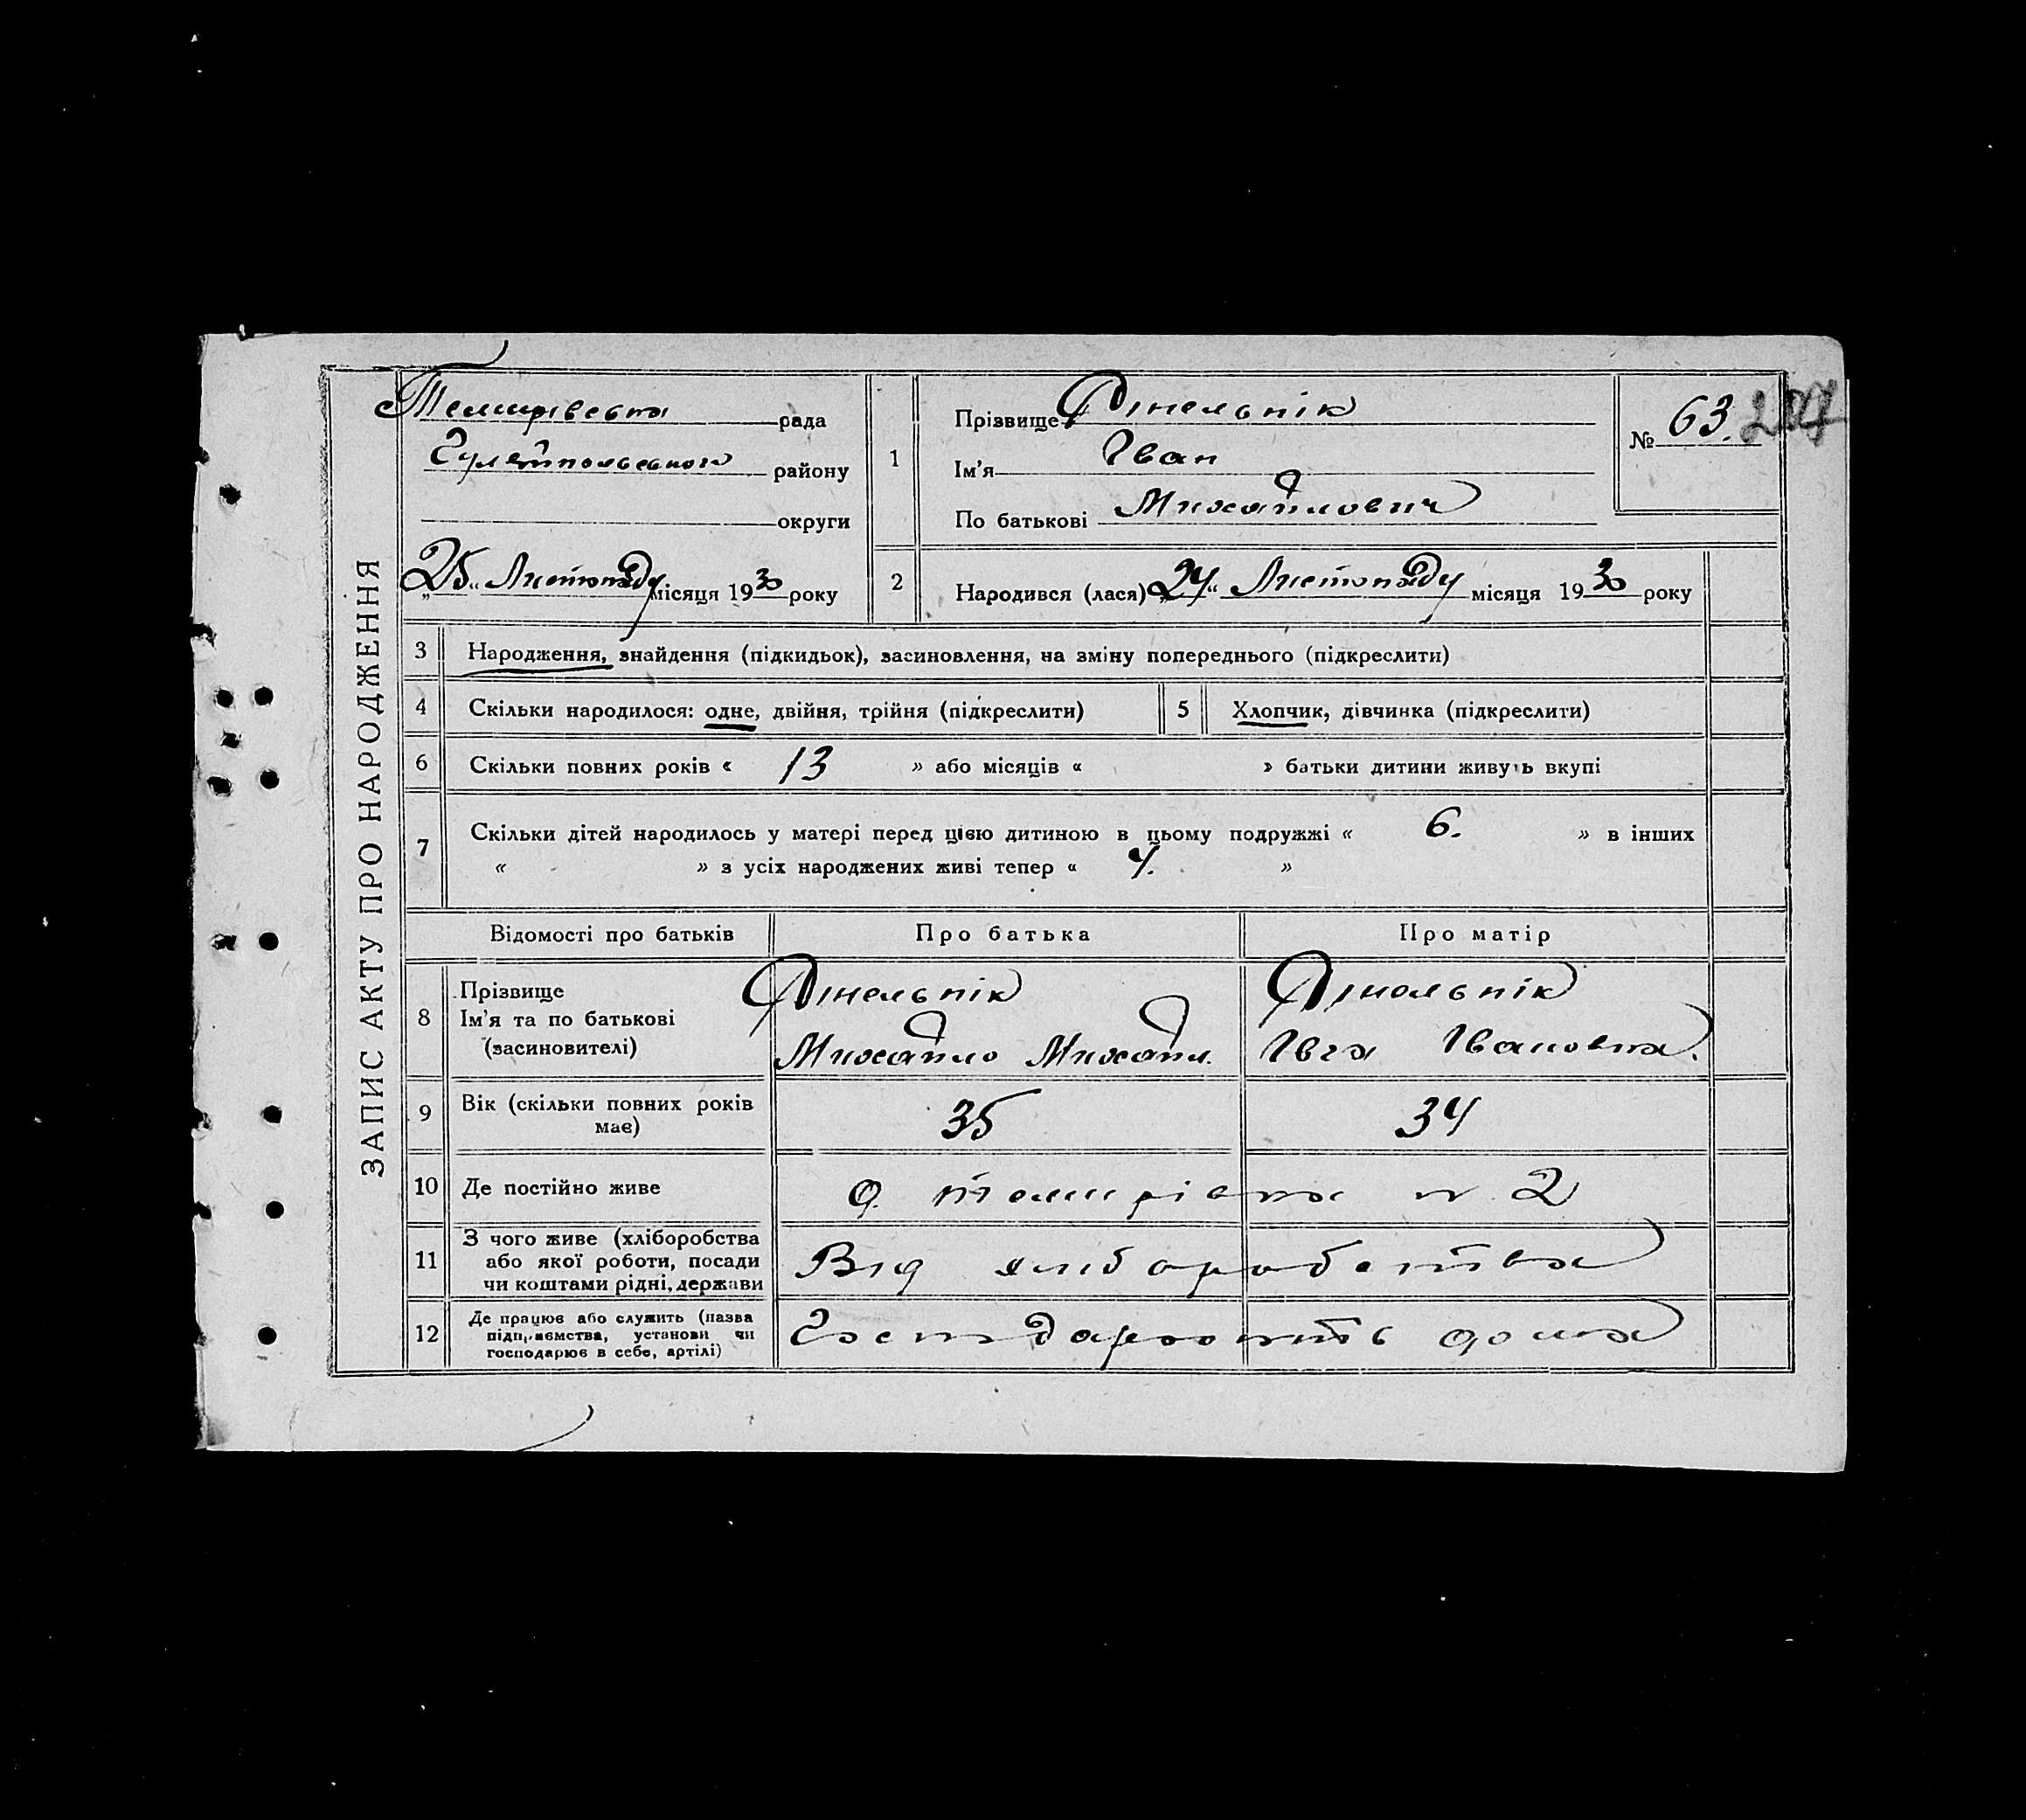 ЗАПИС АКТУ ПРО НАРОДЖЕННЯ
Темирівська рада
Гуляйпольського району
округи
„25“ Листопаду місяця 1930 року
1
Прізвище
Ім'я Іван
По батькові Михайлович
№ 63.
2 Народився (лася) „24“ Листопаду місяця 1930 року
3 Народження, знайдення (підкидьок), засиновлення, на зміну попереднього (підкреслити)
4 Скільки народилося: одне, двійня, трійня (підкреслити) 5 Хлопчик, дівчинка (підкреслити)
6 Скільки повних років « 13 » або місяців « » батьки дитини живуть вкупі
7 Скільки дітей народилось у матері перед цією дитиною в цьому подружжі « 6. » в інших
« » з усіх народжених живі тепер « 4. »
Відомості про батьків Про батька Про матір
8 Прізвище
Ім'я та по батькові Михайло Михайл. Івга Івановна.
(засиновителі)
9 Вік (скільки повних років має) 35 34
10 Де постійно живе с. Темирівка № 2
11 З чого живе (хліборобства
або якої роботи, посади Від хліборобства
чи коштами рідні, держави
12 Де працює або служить (назва
підприємства, установи чи Господарюють дома
господарює в себе, артілі)